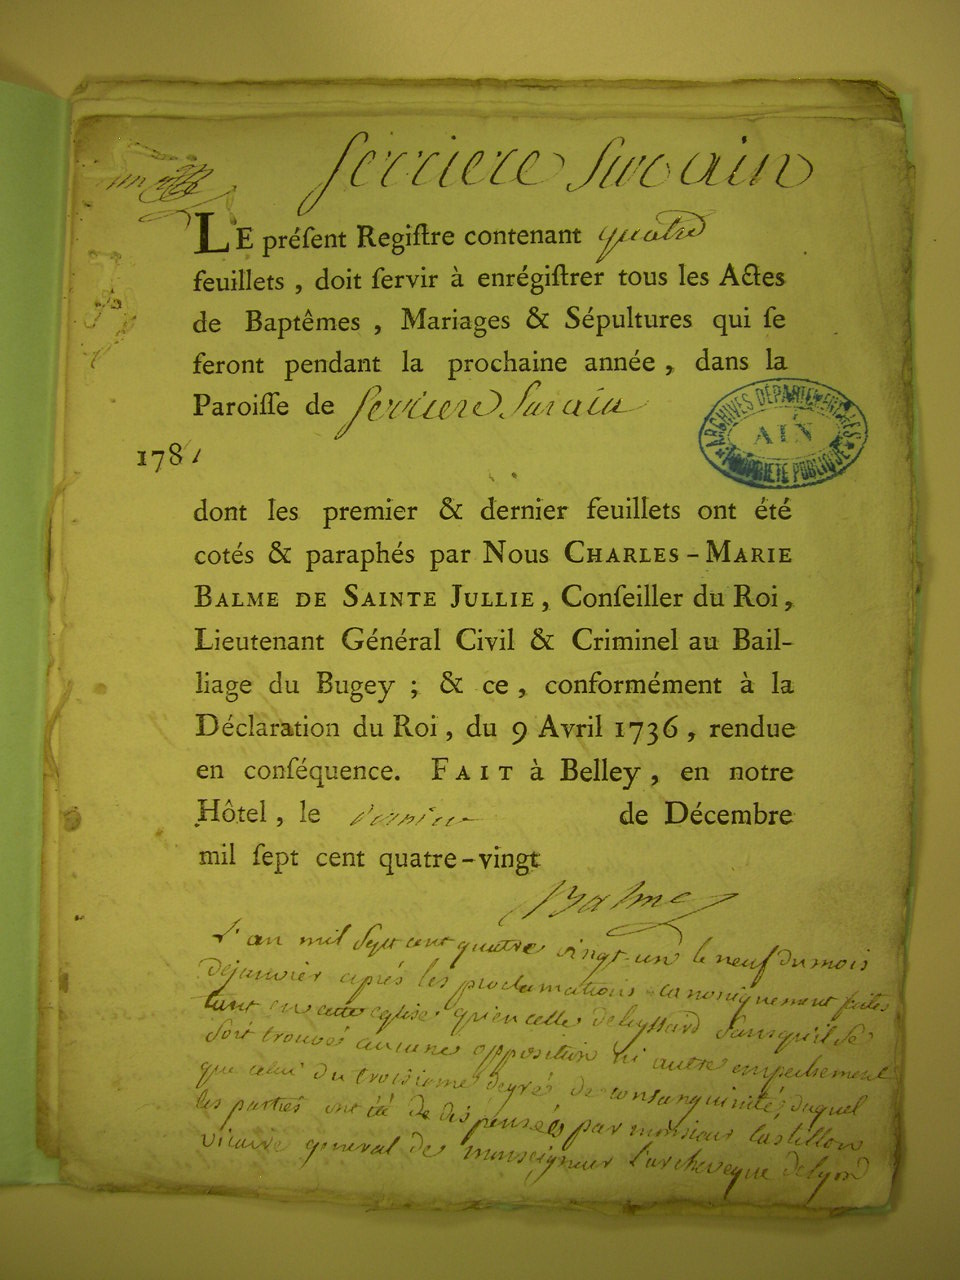 serriere sur ain
LE préſent Regiſtre contenant quatre
feuillets, doit ſervir à enrégiſtrer tous les Actes
de Baptêmes, Mariages & Sépultures qui ſe
feront pendant la prochaine année, dans la
Paroiſſe de serriere sur ain
ARCHIVES DÉPARTEMENTALES
AIN
PROPRIÉTÉ PUBLIQUE
1781
dont les premier & dernier feuillets ont été
cotés & paraphés par Nous CHARLES-MARIE
BALME DE SAINTE JULLIE, Conſeiller du Roi,
Lieutenant Général Civil & Criminel au Bail-
liage du Bugey ; & ce, conformément à la
Déclaration du Roi, du 9 Avril 1736, rendue
en conſéquence. FAIT à Belley, en notre
Hôtel, le de Décembre
mil ſept cent quatre-vingt
Balme
L'an mil sept cent quatre vingt-un le neuf du mois
de janvier après les proclamations canoniquement faites
tant en cette eglise qu'en celle de leyssard sans qu'il se
soit trouvés aucune opposition ni autre empechement
que celui du troisieme degré de consanguinité, duquel
les parties ont été de dispensées par monsieur Castillon
vicaire general de monseigneur l'archeveque de lyon